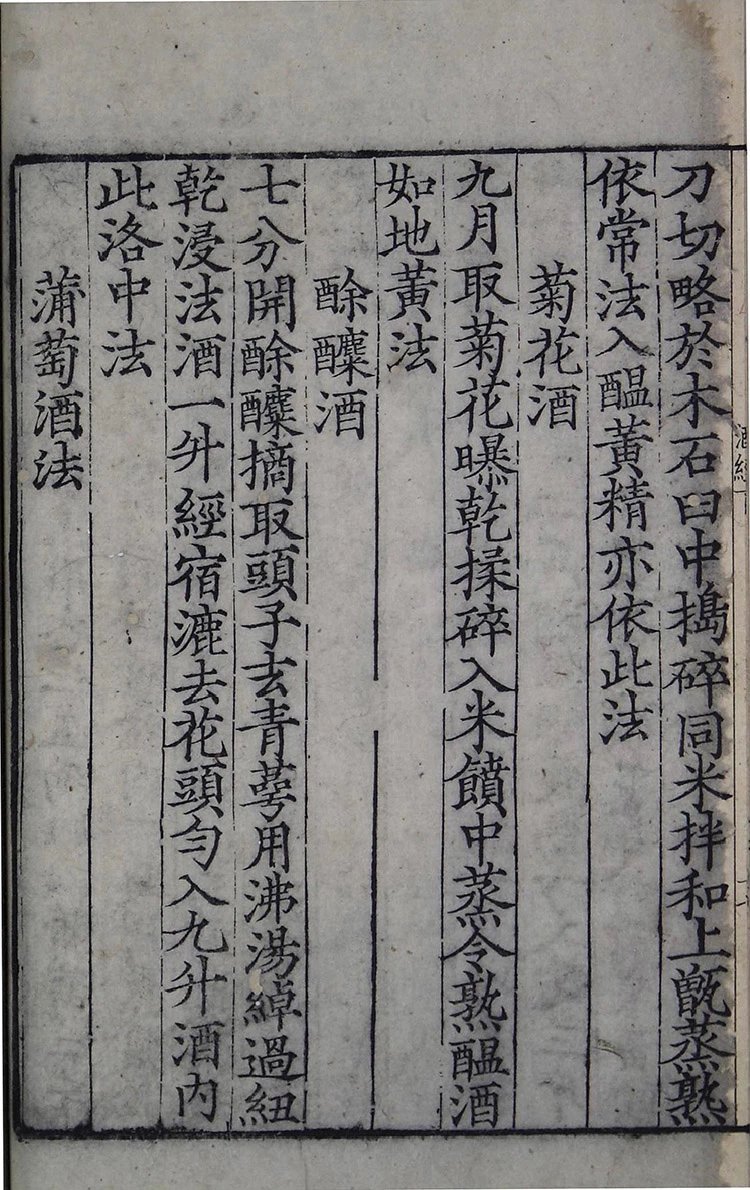 刀切略於木石臼中擣碎同米拌和上甑蒸熟
依常法入醞黃精亦依此法
菊花酒
九月取菊花曝乾揉碎入米饙中蒸令熟醞酒
如地黃法
酴醿酒
七分開酴醿摘取頭子去青萼用沸湯綽過紐
乾浸法酒一升經宿漉去花頭勻入九升酒內
此洛中法
蒲萄酒法
酒經